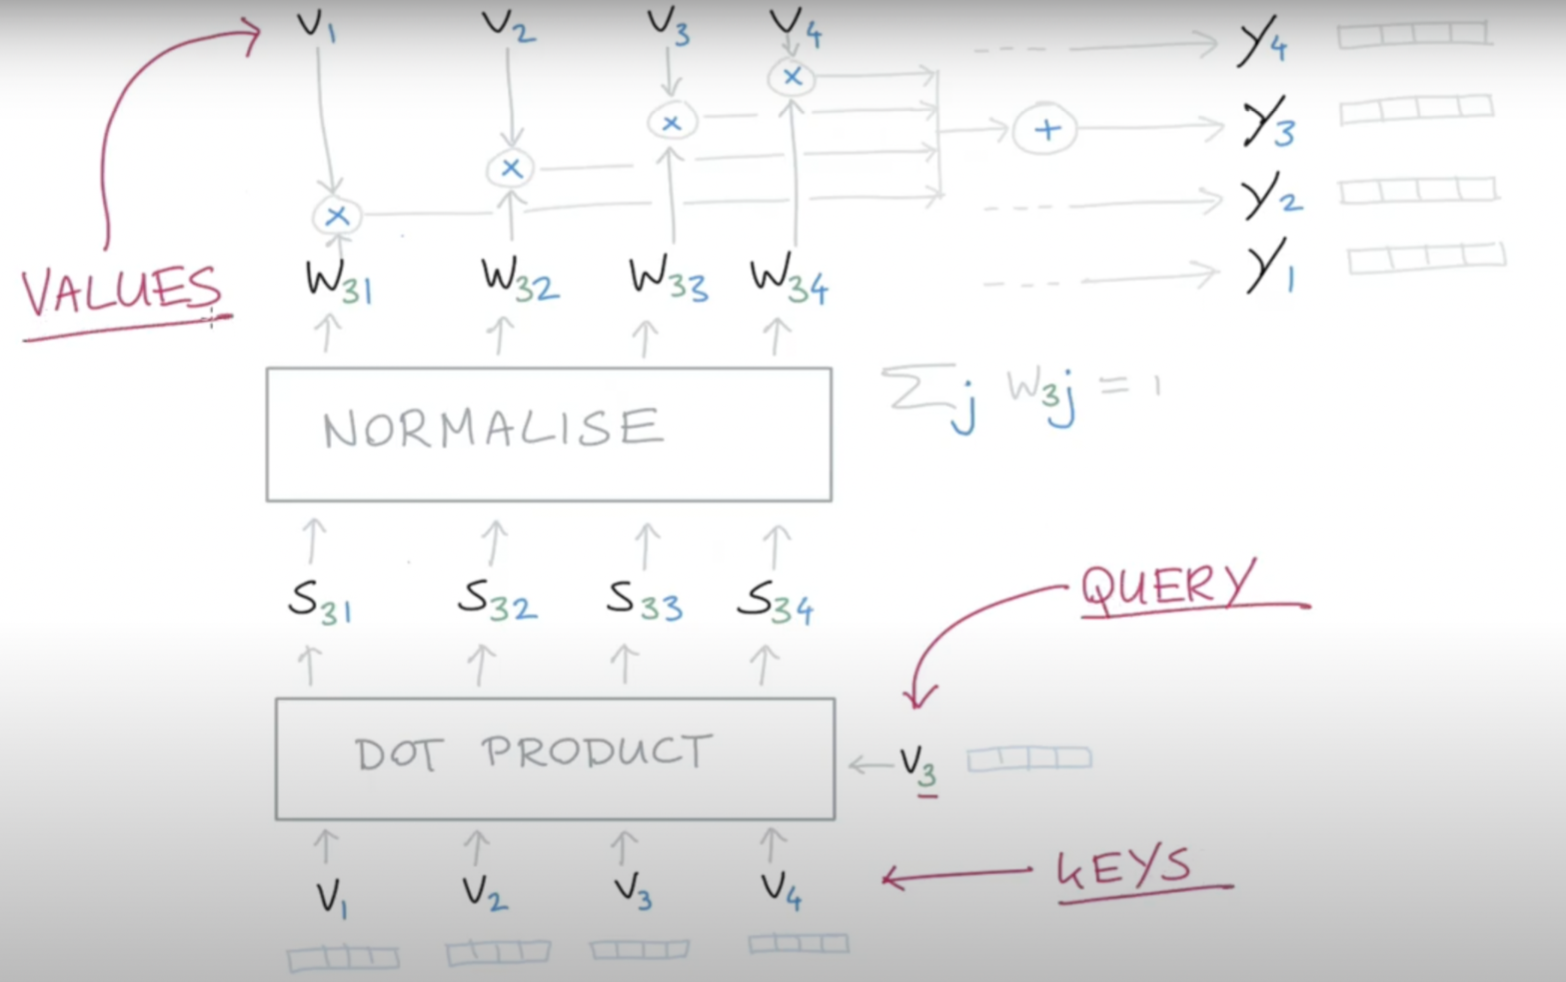 V1 V2 V3 V4 y4
x
x + y3
x
x y2
VALUES W31 W32 W33 W34 y1
NORMALISE Σj W3j = 1
S31 S32 S33 S34 QUERY
DOT PRODUCT V3
V1 V2 V3 V4 KEYS